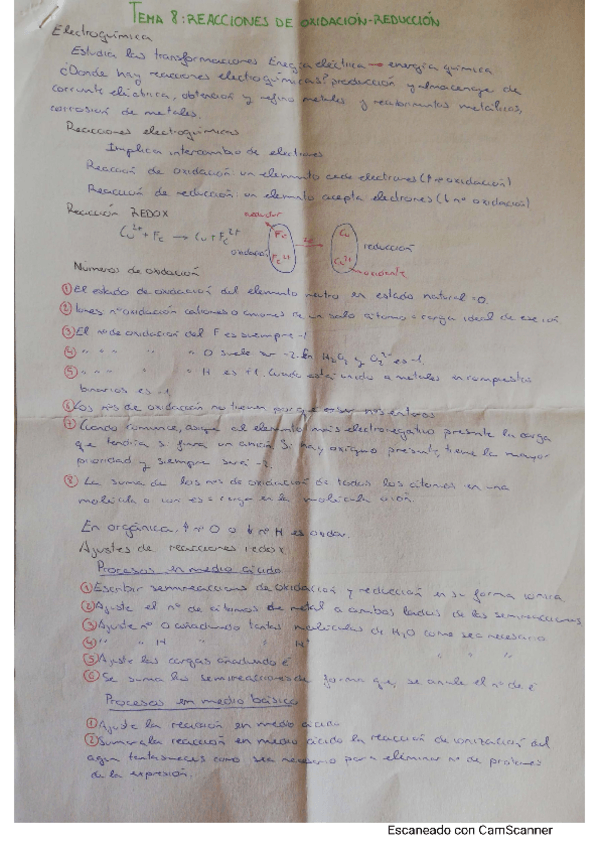 TEMA 8: REACCIONES DE OXIDACIÓN-REDUCCIÓN
Electroquímica
Estudia las transformaciones Energía eléctrica → energía química
¿Donde hay reacciones electroquímicas? producción y almacenaje de
corriente eléctrica, obtención y refino metales y recubrimientos metálicos,
corrosión de metales.
Reacciones electroquímicas
Implica intercambio de electrones
Reacción de oxidación: un elemento cede electrones (↑ nº oxidación)
Reacción de reducción: un elemento acepta electrones (↓ nº oxidación)
Reacción REDOX
Cu²⁺ + Fe → Cu + Fe²⁺
reductor
oxidación
Fe
Fe²⁺
2e⁻
Cu
Cu²⁺
reducción
oxidante
Números de oxidación
① El estado de oxidación del elemento neutro en estado natural = 0.
② nº oxidación cationes o aniones de un solo átomo = carga ideal de ese ion
③ El nº de oxidación del F es siempre -1
④ " " " " " O suele ser -2. En H₂O₂ y O₂²⁻ es -1.
⑤ " " " " " H es +1. Cuando está unido a metales en compuestos
binarios es -1
⑥ Los nºs de oxidación no tienen por que ser nºs enteros
⑦ Cuando asigna al elemento más electronegativo presente la carga
que tendría si fuera un anión. Si hay oxígeno presente, tiene la mayor
prioridad y siempre será -2.
⑧ La suma de los nºs de oxidación de todos los átomos en una
molécula o ion es = carga en la molécula o ión.
En orgánica, ↑ nº O o ↓ nº H es oxidar.
Ajustes de reacciones redox
Procesos en medio ácido
① Escribir semireacciones de oxidación y reducción en su forma iónica
② Ajuste el nº de átomos de metal a ambos lados de las semireacciones
③ Ajuste nº O añadiendo tantas moléculas de H₂O como sea necesario
④ " " H " " H⁺ " " "
⑤ Ajuste las cargas añadiendo e⁻
⑥ Se suma las semireacciones de forma que se anule el nº de e⁻
Procesos en medio básico
① Ajuste la reacción en medio ácido
② Sumar a la reacción en medio ácido la reacción de ionización del
agua tantas veces como sea necesario para eliminar nº de protones
de la expresión.
Escaneado con CamScanner